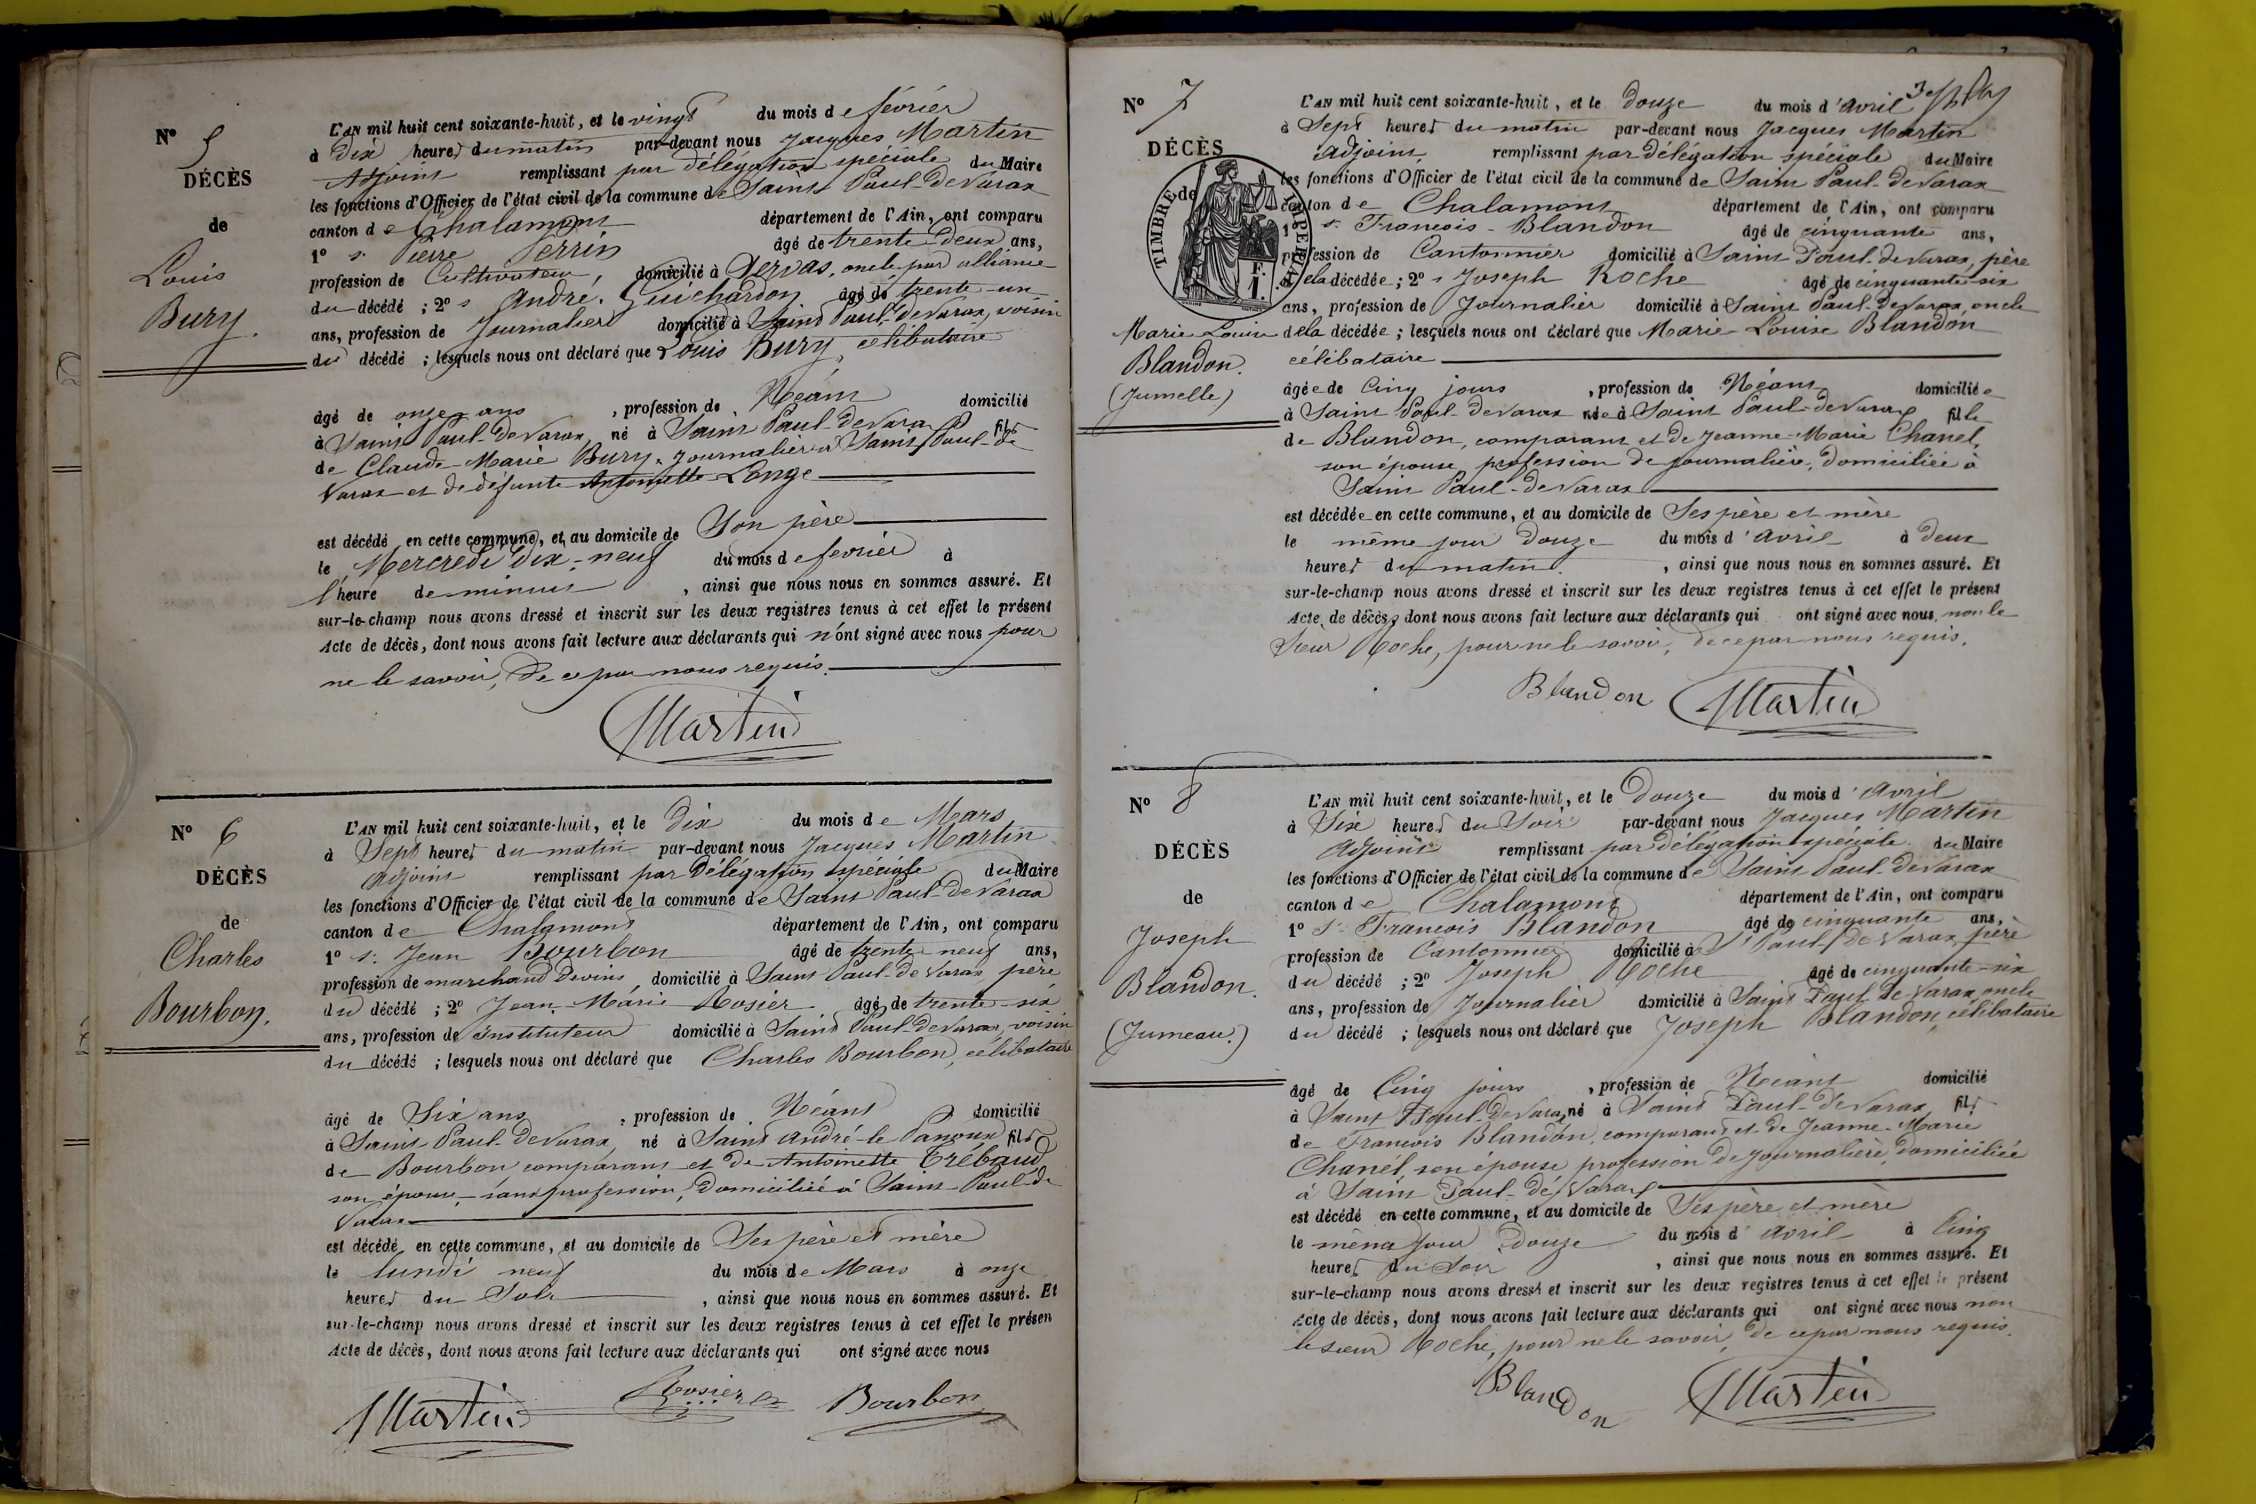 N° 5
DÉCÈS
de
Louis
Bury.
L'AN mil huit cent soixante-huit, et le vingt du mois de février
à Dix heures du matin par-devant nous Jacques Martin
Adjoint remplissant par délégation spéciale du Maire
les fonctions d'Officier de l'état civil de la commune de Saint Paul-de Varax
canton de Chalamont département de l'Ain, ont comparu
1° s. Pierre Perrin âgé de trente deux ans,
profession de Cultivateur, domicilié à Servas, oncle par alliance
du décédé ; 2° s André Guichardon âgé de trente-un
ans, profession de Journalier domicilié à Saint Paul-de Varax, voisin
du décédé ; lesquels nous ont déclaré que Louis Bury, célibataire
âgé de onze ans, profession de Néant domicilié
à Saint Paul-de Varax né à Saint Paul-de Varax fils
de Claude-Marie Bury, Journalier à Saint Paul-de
Varax et de défunte Antoinette Longe
est décédé en cette commune, et au domicile de Son père
le Mercredi dix-neuf du mois de février à
l'heure de minuit, ainsi que nous nous en sommes assuré. Et
sur-le-champ nous avons dressé et inscrit sur les deux registres tenus à cet effet le présent
Acte de décès, dont nous avons fait lecture aux déclarants qui n'ont signé avec nous pour
ne le savoir, de ce par nous requis.
Martin
N° 6
DÉCÈS
de
Charles
Bourbon.
L'AN mil huit cent soixante-huit, et le dix du mois de Mars
à Sept heures du matin par-devant nous Jacques Martin
Adjoint remplissant par Délégation spéciale du Maire
les fonctions d'Officier de l'état civil de la commune de Saint Paul-de Varax
canton de Chalamont département de l'Ain, ont comparu
1° s. Jean Bourbon âgé de trente neuf ans,
profession de marchand de vins, domicilié à Saint Paul-de Varax, père
du décédé ; 2° Jean-Marie Rosier âgé de trente-six
ans, profession de instituteur domicilié à Saint Paul de Varax, voisin
du décédé ; lesquels nous ont déclaré que Charles Bourbon, célibataire
âgé de Six ans, profession de Néant domicilié
à Saint Paul-de Varax, né à Saint André-le Panoux fils
de Bourbon comparant et de Antoinette Trébaud
son épouse, sans profession, Domiciliée à Saint-Paul-de
Varax
est décédé en cette commune, et au domicile de Ses père et mère
le lundi neuf du mois de Mars à onze
heures du Soir, ainsi que nous nous en sommes assuré. Et
sur-le-champ nous avons dressé et inscrit sur les deux registres tenus à cet effet le présen
Acte de décès, dont nous avons fait lecture aux déclarants qui ont signé avec nous
Martin Rosier Bourbon
N° 7
DÉCÈS
de
TIMBRE IMPERIAL
Marie Louise
Blandon.
(Jumelle)
L'AN mil huit cent soixante-huit, et le douze du mois d'avril
à Sept heures du matin par-devant nous Jacques Martin
Adjoint remplissant par délégation spéciale du Maire
les fonctions d'Officier de l'état civil de la commune de Saint Paul-de Varax
canton de Chalamont département de l'Ain, ont comparu
1° s. François Blandon âgé de cinquante ans,
profession de Cantonnier domicilié à Saint Paul-de Varax, père
de la décédée ; 2° s Joseph Roche âgé de cinquante-six
ans, profession de Journalier domicilié à Saint Paul-de Varax, oncle
de la décédée ; lesquels nous ont déclaré que Marie-Louise Blandon
célibataire
âgée de Cinq jours, profession de Néant domiciliée
à Saint Paul-de Varax née à Saint Paul-de Varax fille
de Blandon, comparant et de Jeanne-Marie Chanel,
son épouse, profession de journalière, domiciliée à
Saint Paul-de Varax
est décédée en cette commune, et au domicile de Ses père et mère
le même jour Douze du mois d'avril à deux
heures du matin, ainsi que nous nous en sommes assuré. Et
sur-le-champ nous avons dressé et inscrit sur les deux registres tenus à cet effet le présent
Acte de décès, dont nous avons fait lecture aux déclarants qui ont signé avec nous, non le
Sieur Roche, pour ne le savoir, de ce par nous requis.
Blandon Martin
N° 8
DÉCÈS
de
Joseph
Blandon.
(Jumeau.)
L'AN mil huit cent soixante-huit, et le Douze du mois d'avril
à Six heures du Soir par-devant nous Jacques Martin
Adjoint remplissant par délégation spéciale du Maire
les fonctions d'Officier de l'état civil de la commune de Saint Paul-de Varax
canton de Chalamont département de l'Ain, ont comparu
1° s. François Blandon âgé de cinquante ans,
profession de Cantonnier domicilié à St Paul-de Varax, père
du décédé ; 2° Joseph Roche âgé de cinquante-six
ans, profession de Journalier domicilié à Saint Paul de Varax, oncle
du décédé ; lesquels nous ont déclaré que Joseph Blandon, célibataire
âgé de Cinq jours, profession de Néant domicilié
à Saint Paul-de Varax né à Saint Paul-de Varax fils
de François Blandon, comparant et de Jeanne-Marie
Chanel, son épouse, profession de journalière, domiciliée
à Saint Paul-de Varax
est décédé en cette commune, et au domicile de Ses père et mère
le même jour Douze du mois d'avril à Cinq
heures du Soir, ainsi que nous nous en sommes assuré. Et
sur-le-champ nous avons dressé et inscrit sur les deux registres tenus à cet effet le présent
Acte de décès, dont nous avons fait lecture aux déclarants qui ont signé avec nous non
le sieur Roche, pour ne le savoir, de ce par nous requis.
Blandon Martin